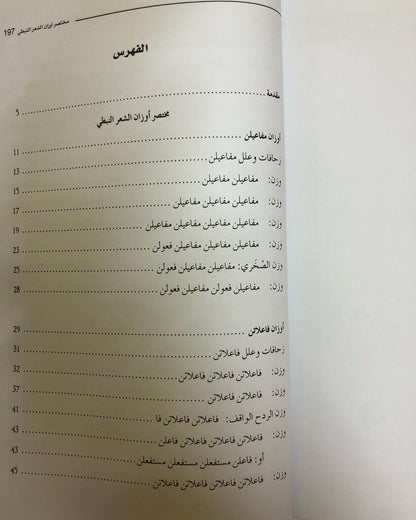 مختصر اوزان الشعر النبطي 197
الفهرس
مقدمة 5
مختصر أوزان الشعر النبطي
أوزان مفاعيلن 11
زحافات وعلل مفاعيلن 13
وزن: مفاعيلن مفاعيلن 15
وزن: مفاعيلن مفاعيلن مفاعيلن 17
وزن: مفاعيلن مفاعيلن مفاعيلن مفاعيلن 19
وزن: مفاعيلن مفاعيلن مفاعيلن فعولن 23
وزن الصّخَري: مفاعيلن مفاعيلن فعولن 25
وزن: مفاعيلن فعولن مفاعيلن فعولن 28
أوزان فاعلاتن 29
زحافات وعلل فاعلاتن 31
وزن: فاعلاتن فاعلاتن فاعلاتن 32
وزن: فاعلاتن فاعلاتن 37
وزن الردح الواقف: فاعلاتن فاعلاتن فا 41
وزن: فاعلاتن فاعلاتن فاعلاتن فاعلن 43
أو: فاعلن مستفعلن مستفعلن مستفعلن 43
وزن: فاعلاتن فاعلاتن فاعلاتن فاعلاتن 45